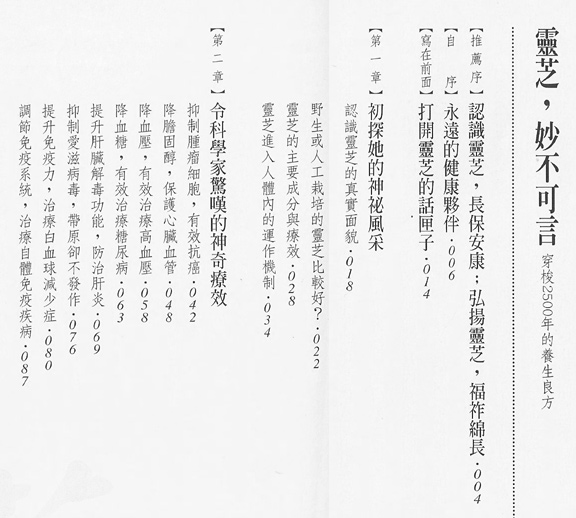 靈芝，妙不可言 穿梭2500年的養生良方
【推薦序】認識靈芝，長保安康；弘揚靈芝，福祚綿長・004
【自　序】永遠的健康夥伴・006
【寫在前面】打開靈芝的話匣子・014
【第一章】初探她的神祕風采
認識靈芝的真實面貌・018
野生或人工栽培的靈芝比較好？・022
靈芝的主要成分與療效・028
靈芝進入人體內的運作機制・034
【第二章】令科學家驚嘆的神奇療效
抑制腫瘤細胞，有效抗癌・042
降膽固醇，保護心臟血管・048
降血壓，有效治療高血壓・058
降血糖，有效治療糖尿病・063
提升肝臟解毒功能，防治肝炎・069
抑制愛滋病毒，帶原卻不發作・076
提升免疫力，治療白血球減少症・080
調節免疫系統，治療自體免疫疾病・087